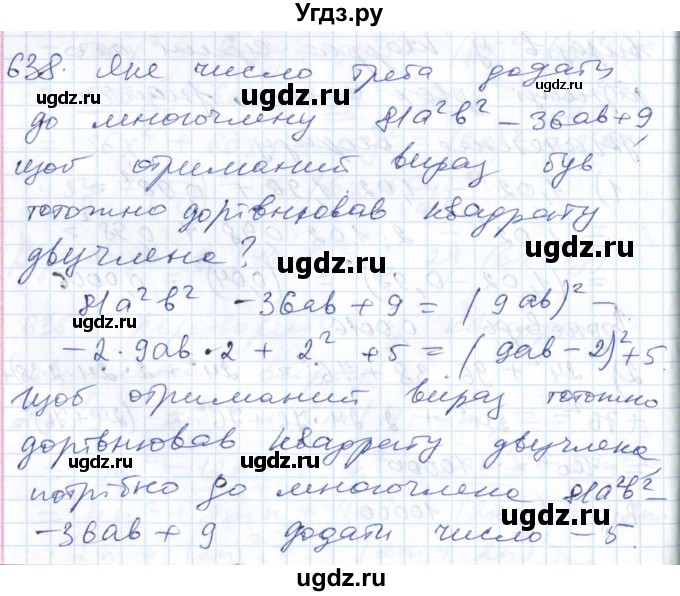 Угдз.ру
638. Яке число треба додати
до многочлену 81a²b² - 36ab + 9,
щоб отриманий вираз був
тотожно дорівнював квадрату
двучлена?
81a²b² - 36ab + 9 = (9ab)² -
- 2 · 9ab · 2 + 2² + 5 = (9ab - 2)² + 5.
Щоб отриманий вираз тотожно
дорівнював квадрату двучлена,
потрібно до многочлена 81a²b² -
- 36ab + 9 додати число - 5.
ugdz.ru
ugdz.ru
ugdz.ru
ugdz.ru
ugdz.ru
ugdz.ru
ugdz.ru
ugdz.ru
ugdz.ru
ugdz.ru